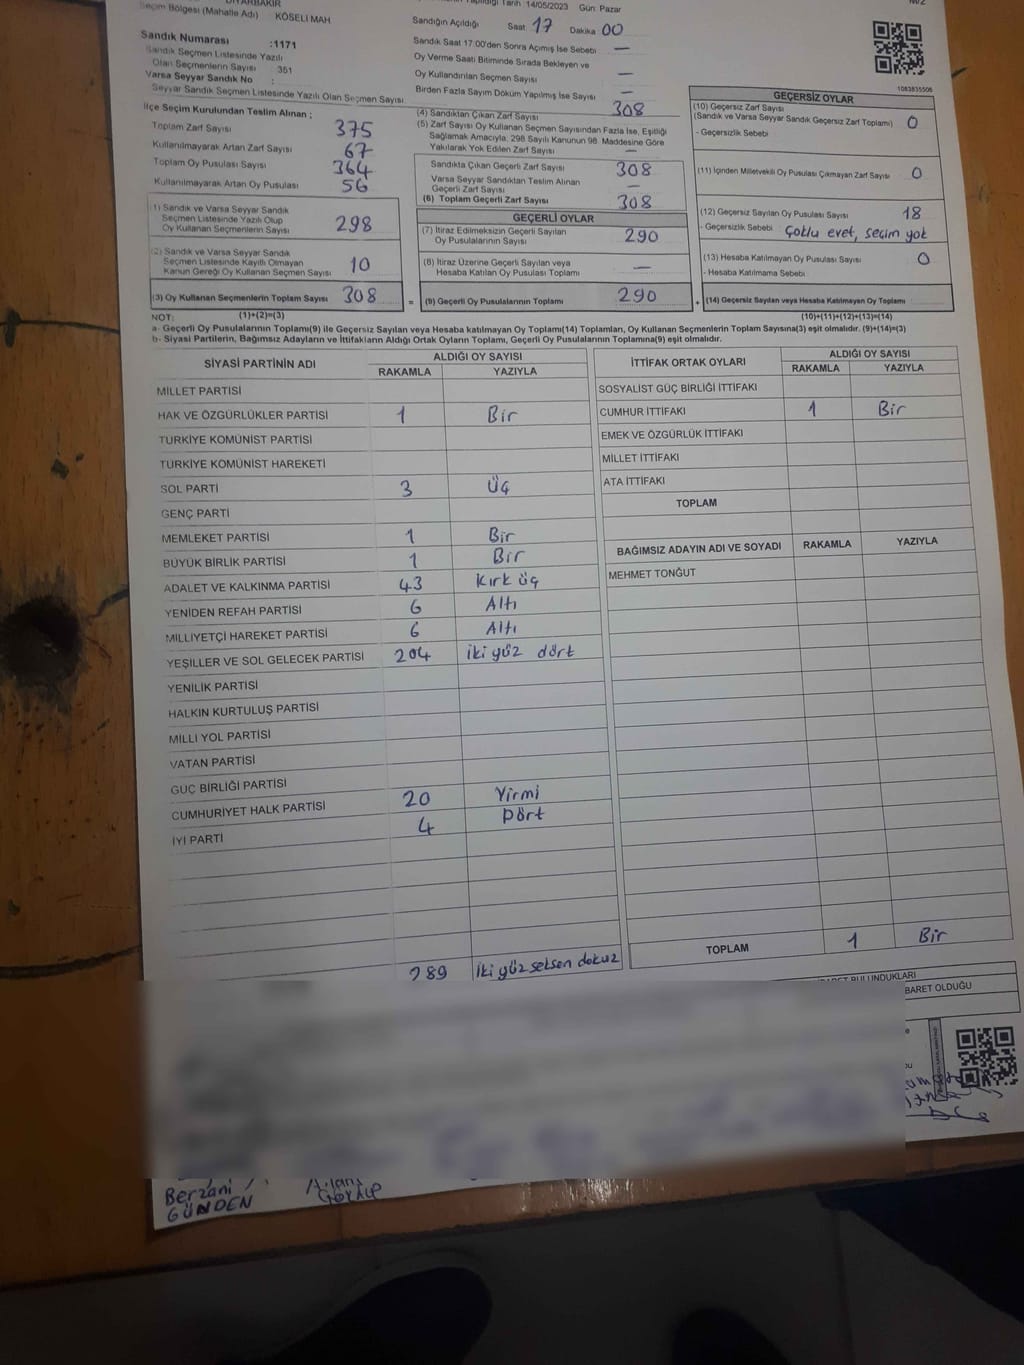 DİYARBAKIR
Seçim Bölgesi (Mahalle Adı) KÖSELİ MAH
Yapıldığı Tarih 14/05/2023 Gün: Pazar
Sandık Numarası :1171
Sandık Seçmen Listesinde Yazılı
Olan Seçmenlerin Sayısı 351
Varsa Seyyar Sandık No :
Seyyar Sandık Seçmen Listesinde Yazılı Olan Seçmen Sayısı
Sandığın Açıldığı Saat 17 Dakika 00
Sandık Saat 17.00'den Sonra Açılmış İse Sebebi —
Oy Verme Saati Bitiminde Sırada Bekleyen ve
Oy Kullandırılan Seçmen Sayısı —
Birden Fazla Sayım Döküm Yapılmış İse Sayısı —
1083835506
İlçe Seçim Kurulundan Teslim Alınan ;
Toplam Zarf Sayısı 375
Kullanılmayarak Artan Zarf Sayısı 67
Toplam Oy Pusulası Sayısı 364
Kullanılmayarak Artan Oy Pusulası 56
(1) Sandık ve Varsa Seyyar Sandık
Seçmen Listesinde Yazılı Olup
Oy Kullanan Seçmenlerin Sayısı 298
(2) Sandık ve Varsa Seyyar Sandık
Seçmen Listesinde Kayıtlı Olmayan
Kanun Gereği Oy Kullanan Seçmen Sayısı 10
(3) Oy Kullanan Seçmenlerin Toplam Sayısı 308
(4) Sandıktan Çıkan Zarf Sayısı 308
(5) Zarf Sayısı Oy Kullanan Seçmen Sayısından Fazla İse, Eşitliği
Sağlamak Amacıyla, 298 Sayılı Kanunun 98. Maddesine Göre
Yakılarak Yok Edilen Zarf Sayısı —
Sandıkta Çıkan Geçerli Zarf Sayısı 308
Varsa Seyyar Sandıktan Teslim Alınan
Geçerli Zarf Sayısı —
(6) Toplam Geçerli Zarf Sayısı 308
GEÇERLİ OYLAR
(7) İtiraz Edilmeksizin Geçerli Sayılan
Oy Pusulalarının Sayısı 290
(8) İtiraz Üzerine Geçerli Sayılan veya
Hesaba Katılan Oy Pusulası Toplamı —
= (9) Geçerli Oy Pusulalarının Toplamı 290
GEÇERSİZ OYLAR
(10) Geçersiz Zarf Sayısı
(Sandık ve Varsa Seyyar Sandık Geçersiz Zarf Toplamı) 0
- Geçersizlik Sebebi
(11) İçinden Milletvekili Oy Pusulası Çıkmayan Zarf Sayısı 0
(12) Geçersiz Sayılan Oy Pusulası Sayısı 18
- Geçersizlik Sebebi: Çoklu evet, seçim yok
(13) Hesaba Katılmayan Oy Pusulası Sayısı 0
- Hesaba Katılmama Sebebi
+ (14) Geçersiz Sayılan veya Hesaba Katılmayan Oy Toplamı
NOT: (1)+(2)=(3) (10)+(11)+(12)+(13)=(14)
a- Geçerli Oy Pusulalarının Toplamı(9) ile Geçersiz Sayılan veya Hesaba katılmayan Oy Toplamı(14) Toplamları, Oy Kullanan Seçmenlerin Toplam Sayısına(3) eşit olmalıdır. (9)+(14)=(3)
b- Siyasi Partilerin, Bağımsız Adayların ve İttifakların Aldığı Ortak Oyların Toplamı, Geçerli Oy Pusulalarının Toplamına(9) eşit olmalıdır.
SİYASİ PARTİNİN ADI ALDIĞI OY SAYISI
RAKAMLA YAZIYLA
MİLLET PARTİSİ
HAK VE ÖZGÜRLÜKLER PARTİSİ 1 Bir
TÜRKİYE KOMÜNİST PARTİSİ
TÜRKİYE KOMÜNİST HAREKETİ
SOL PARTİ 3 Üç
GENÇ PARTİ
MEMLEKET PARTİSİ 1 Bir
BÜYÜK BİRLİK PARTİSİ 1 Bir
ADALET VE KALKINMA PARTİSİ 43 Kırk üç
YENİDEN REFAH PARTİSİ 6 Altı
MİLLİYETÇİ HAREKET PARTİSİ 6 Altı
YEŞİLLER VE SOL GELECEK PARTİSİ 204 iki yüz dört
YENİLİK PARTİSİ
HALKIN KURTULUŞ PARTİSİ
MİLLİ YOL PARTİSİ
VATAN PARTİSİ
GÜÇ BİRLİĞİ PARTİSİ
CUMHURİYET HALK PARTİSİ 20 Yirmi
İYİ PARTİ 4 Dört
289 iki yüz seksen dokuz
İTTİFAK ORTAK OYLARI ALDIĞI OY SAYISI
RAKAMLA YAZIYLA
SOSYALİST GÜÇ BİRLİĞİ İTTİFAKI
CUMHUR İTTİFAKI 1 Bir
EMEK VE ÖZGÜRLÜK İTTİFAKI
MİLLET İTTİFAKI
ATA İTTİFAKI
TOPLAM
BAĞIMSIZ ADAYIN ADI VE SOYADI RAKAMLA YAZIYLA
MEHMET TONĞUT
TOPLAM 1 Bir
BULUNDUKLARI
BARET OLDUĞU
Berzani
GÜNDEN